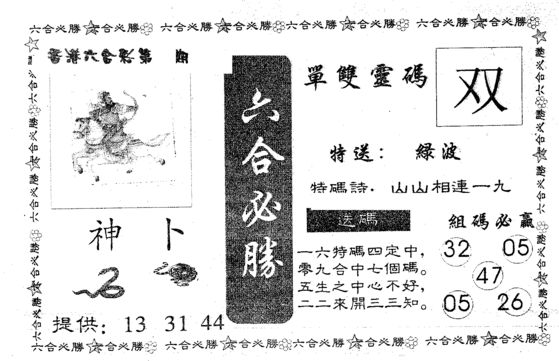 六合必勝☆六合必勝 六合必勝☆六合必勝 六合必勝☆六合必勝 六合必勝☆六合必勝
香港六合彩第 期
六合必勝
單雙靈碼
双
特送： 綠波
特碼詩．山山相連一九
送碼
一六特碼四定中，
零九合中七個碼。
五生之中心不好，
二二來開三三知。
組碼必贏
32 05
47
05 26
神卜
提供：13 31 44
六合必勝☆六合必勝 六合必勝☆六合必勝 六合必勝☆六合必勝 六合必勝☆六合必勝